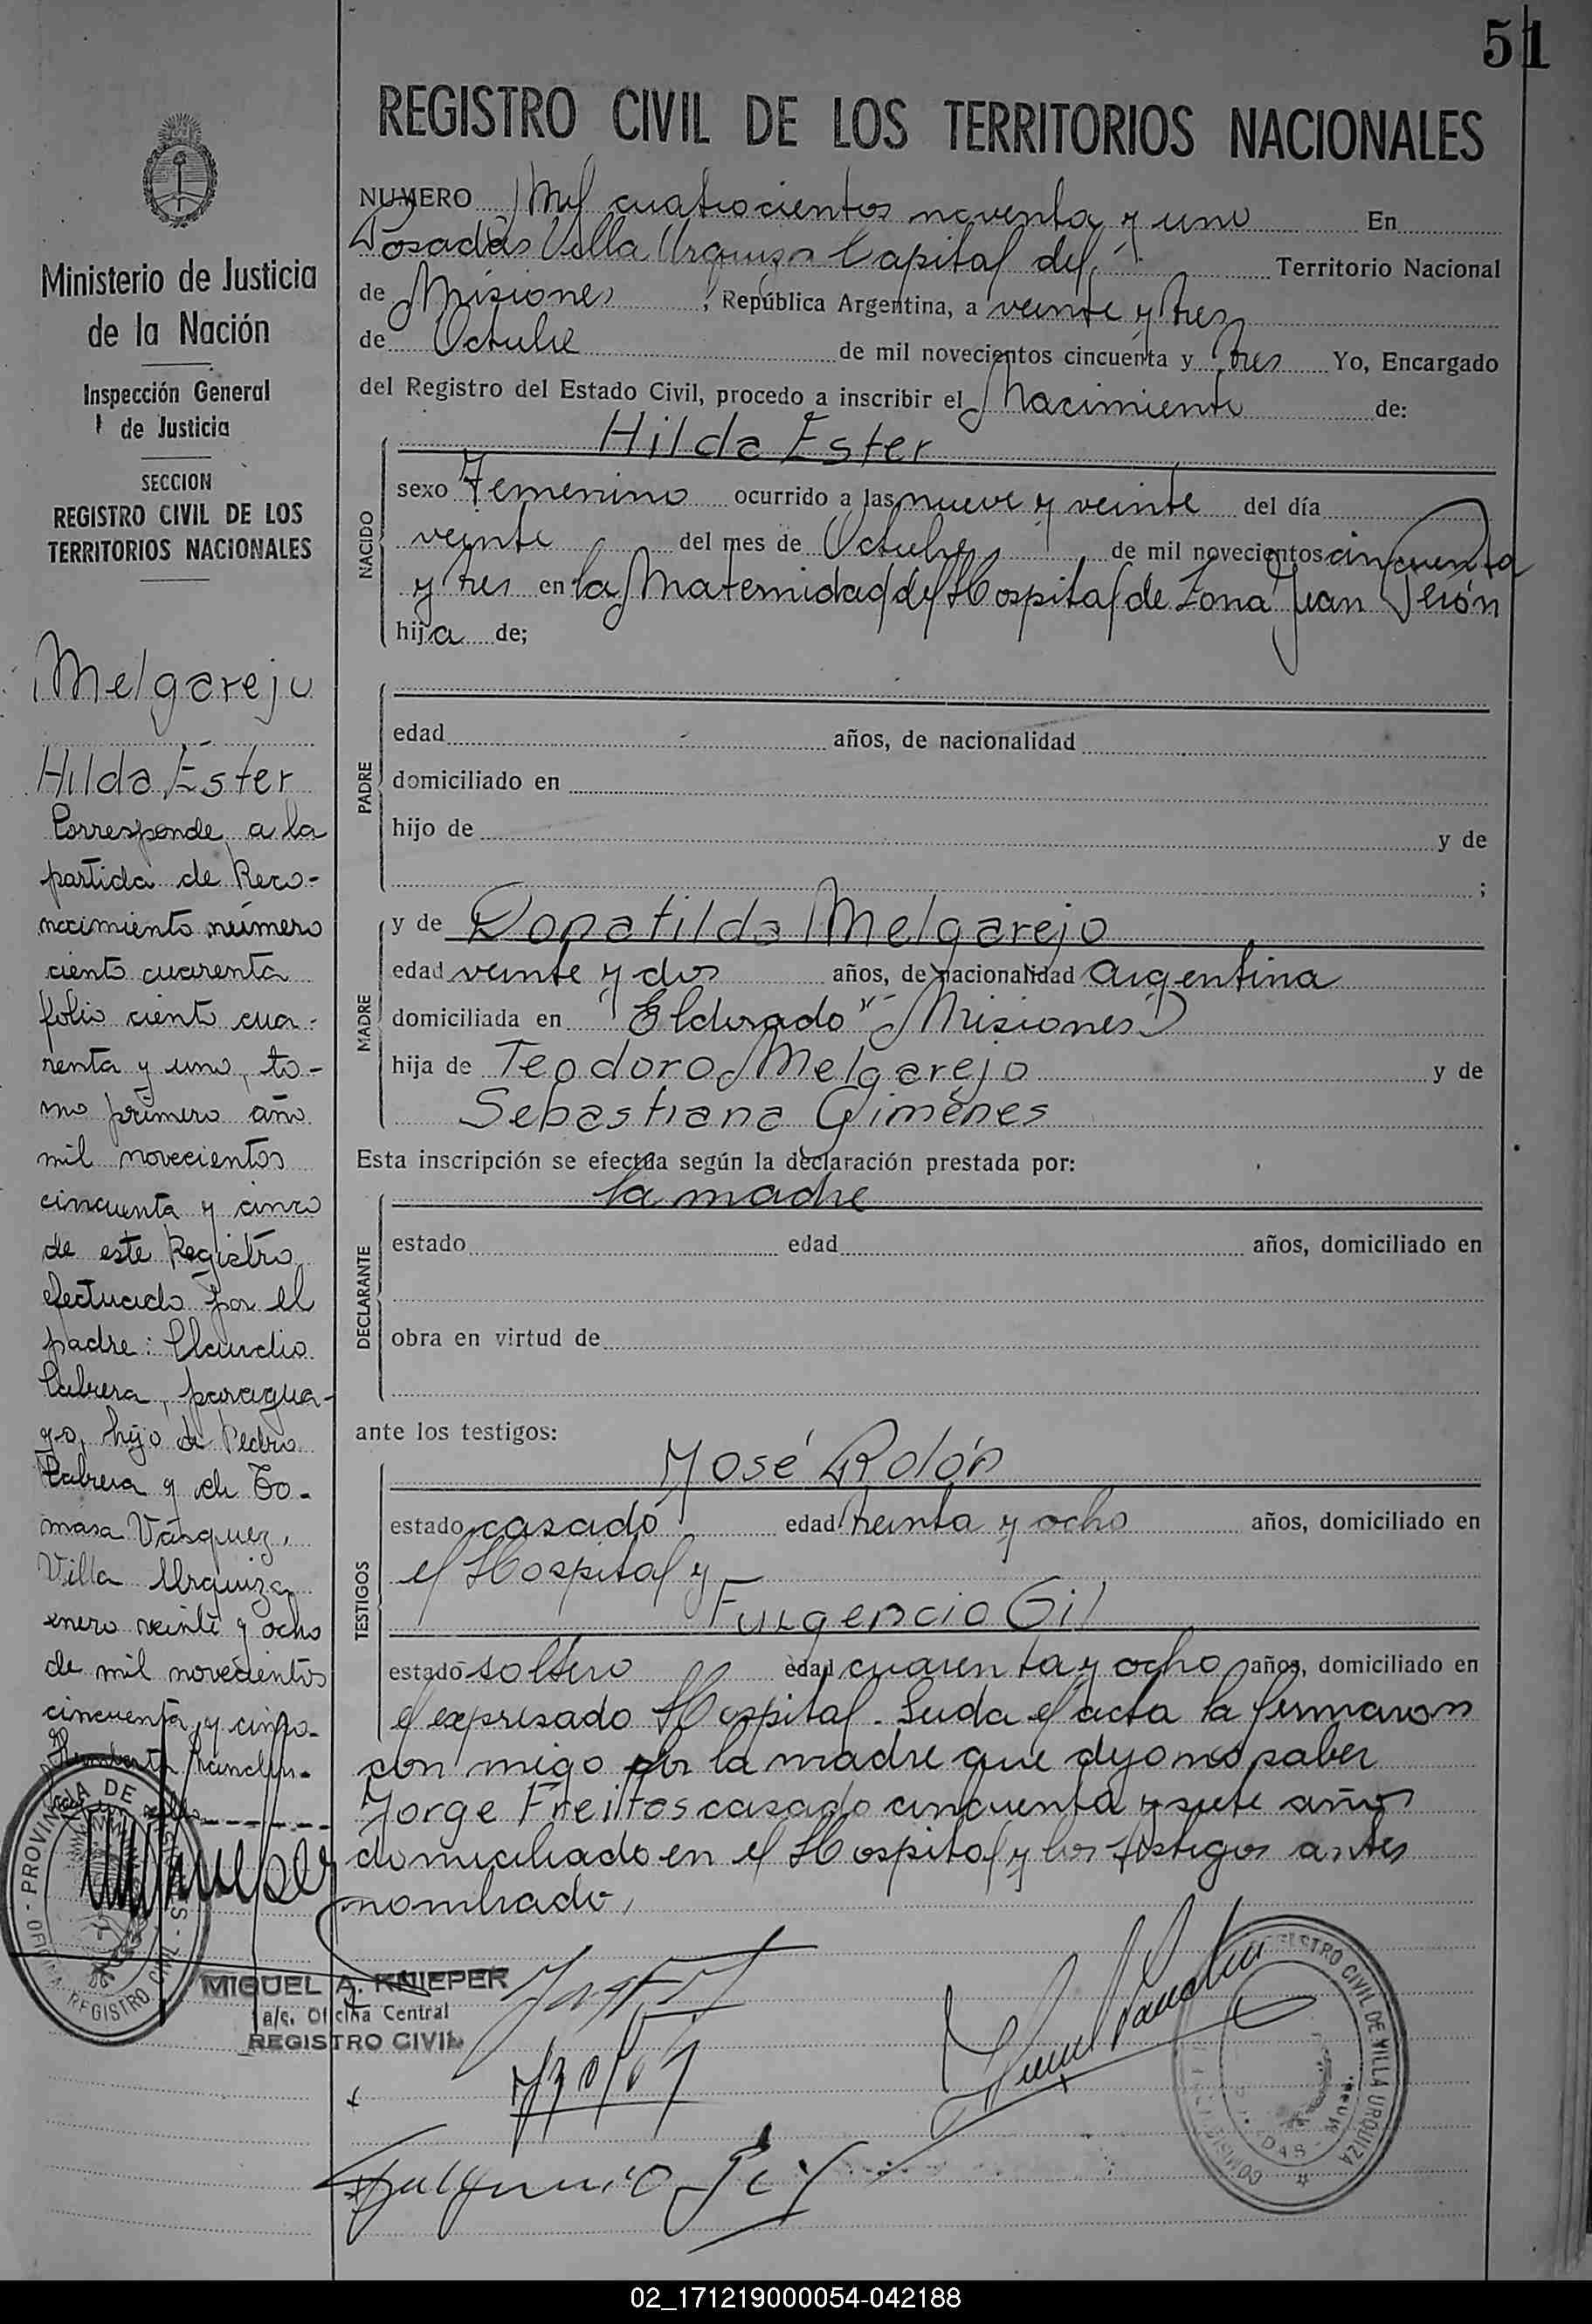 51
REGISTRO CIVIL DE LOS TERRITORIOS NACIONALES
NUMERO Mil cuatrocientos noventa y uno En
Posadas Villa Urquiza Capital del Territorio Nacional
de Misiones, República Argentina, a veinte y tres
de Octubre de mil novecientos cincuenta y tres Yo, Encargado
del Registro del Estado Civil, procedo a inscribir el Nacimiento de:
NACIDO
Hilda Ester
sexo Femenino ocurrido a las nueve y veinte del día
veinte del mes de Octubre de mil novecientos cincuenta
y tres en la Maternidad del Hospital de Zona Juan Perón
hija de;
PADRE
edad años, de nacionalidad
domiciliado en
hijo de y de
;
MADRE
y de Donatilda Melgarejo
edad veinte y dos años, de nacionalidad Argentina
domiciliada en "Eldorado" Misiones
hija de Teodoro Melgarejo y de
Sebastiana Giménes
Esta inscripción se efectúa según la declaración prestada por:
DECLARANTE
la madre
estado edad años, domiciliado en
obra en virtud de
ante los testigos:
TESTIGOS
José Rolón
estado casado edad treinta y ocho años, domiciliado en
el Hospital y
Fulgencio Gil
estado soltero edad cuarenta y ocho años, domiciliado en
el expresado Hospital. Leida el acta la firmaron
con migo por la madre que dijo no saber
Jorge Freittos casado cincuenta y siete años
domiciliado en el Hospital y los testigos antes
nombrado,
Fulgencio Gil
Ministerio de Justicia
de la Nación
Inspección General
de Justicia
SECCION
REGISTRO CIVIL DE LOS
TERRITORIOS NACIONALES
Melgarejo
Hilda Ester
Corresponde a la
partida de Reco-
nocimiento número
ciento cuarenta
folio ciento cua-
renta y uno, to-
mo primero año
mil novecientos
cincuenta y cinco
de este Registro
efectuado por el
padre: Claudio
Cabrera, paragua-
yo, hijo de Pedro
Cabrera y de To-
masa Vásquez,
Villa Urquiza
enero veinte y ocho
de mil novecientos
cincuenta y cinco-
Humberto
PROVINCIA DE MISIONES - OFICINA REGISTRO CIVIL
MIGUEL A. KNIEPER
a/c. Oficina Central
REGISTRO CIVIL
REGISTRO CIVIL DE VILLA URQUIZA
02_171219000054-042188